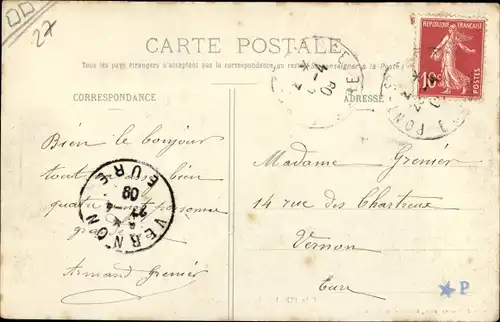 27
CARTE POSTALE
Tous les pays étrangers n'acceptent pas la correspondance au recto. Se renseigner à la Poste
CORRESPONDANCE
ADRESSE
REPUBLIQUE FRANÇAISE
10c
Bien le bonjour
tout va bien
quatre personne
Armand Grenier
Madame Grenier
14 rue des Chartreux
Vernon
Eure
VERNON
EURE
09
PONT
P